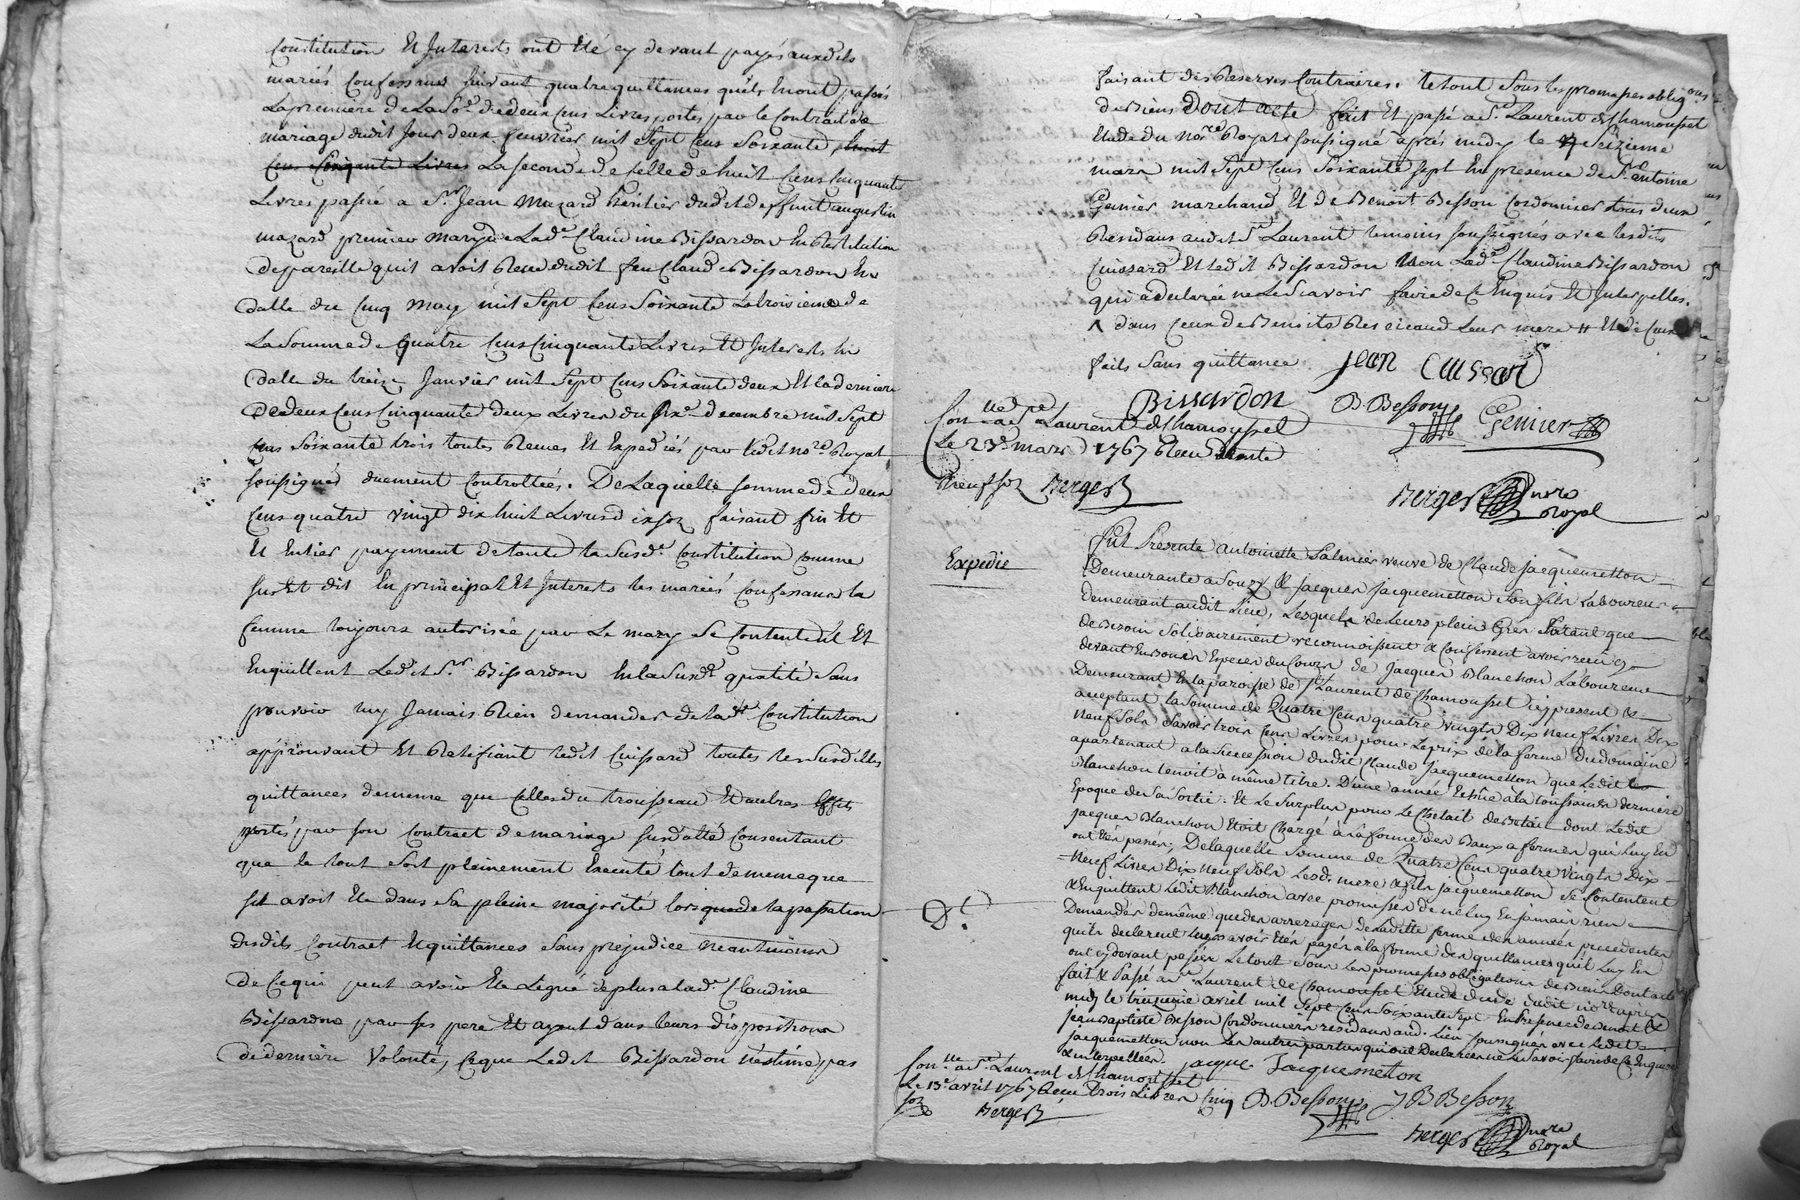 Constitution Et Interests ont Eté cy devant payés auxdits
mariés Confessans suivant quatre quittances qu'ils luy ont passés
La premiere de La So.e de deux Cens Livres portés par le Contrat de
mariage dudit Jour deux feuvrier mil Sept Cens Soixante, huit
Cens Cinquante Livres La seconde de celle de huit Cens Cinquante
Livres passée a S.r Jean Mazard heritier dudit deffunt augustin
mazard premier mary de Lad.e Claudine Bissardon En Restitution
de pareille qu'il avoit Reçue dudit feu Claude Bissardon En
datte du Cinq May mil Sept Cens Soixante La troisieme de
La Somme de quatre Cens Cinquante Livres Et Interests En
datte du treize Janvier mil Sept Cens Soixante deux Et la derniere
de deux Cens Cinquante deux Livres du six.e decembre mil Sept
Cens Soixante trois toutes Reçues Et Expediés par Ledit no.re Royal
soussigné duement Controllées. De Laquelle somme de deux
Cens quatre vingt dix huit Livres dix sol faisant fin Et
Et Entier payement de toute la Susd.e Constitution comme
sus Est dit En principal Et Interests les mariés Confessans la
femme toujours autorisée par Le mary Se Contentent Et
En quittent Led.t S.r Bissardon En la Susd.e qualité Sans
pouvoir luy Jamais Rien demander de lad.e Constitution
approuvant Et Ratifiant ledit Cuissard toutes les Susdittes
quittances de meme que Celles du trousseau Et autres Effets
portés par son Contract de mariage susdatté Consentant
que le tout soit pleinement Executé tout de meme que
s'il avoit Eté dans Sa pleine majorité lors que de la passation
desdits Contract Et quittances Sans prejudice neantmoins
de Ce qui peut avoir Eté Legué de plus a lad.e Claudine
Bissardon par ses pere Et ayant dans leurs dispositions
de derniere Volonté, Ce que Ledit Bissardon n'estime pas
faisant des Reserves Contraires. le tout Sous les promesses oblig.ons
de Biens dont acte fait Et passé a S.t Laurent de Chamousset
Etude du No.re Royal soussigné après midy le Seizieme
mars mil Sept Cens Soixante Sept En presence de S.r antoine
Genier marchand Et de Benoit Besson Cordonnier tous deux
Residans audit S.t Laurent temoins soussignés avec lesdits
Cuissard Et Ledit Bissardon Non Lad.e Claudine Bissardon
qui a declarée ne Le Sçavoir faire de Ce Enquis Et Interpellés.
dans ceux de Leur mere Et de Ceux
faits Sans quittance. Jean Cuissard
Bissardon B. Besson Genier
Con.lle a S.t Laurent de Chamousset
Le 23.e mars 1767 Reçu trente
neuf sol Berger
Berger no.re Royal
Expedie
Fut Presente antoinette Palmier veuve de Claude jacquemetton
Demeurante a Souzy & jacques jacquemetton Son fils Laboureur
demeurant audit Lieu, Lesquels de Leurs plein Gres Et atant que
de Besoin Solidairement reconnoissent & Confessent avoir reçu cy
devant En Bonnes Especes du Cours de jacques Blanchon Laboureur
Demeurant En la paroisse de S.t Laurent de Chamousset icy present &
acceptant la Somme de Quatre Cens quatre Vingts Dix Neuf Livres Dix
Neuf Sols Savoir trois Cens Livres pour Le prix de la ferme du domaine
apartenant a la Succession dudit Claude jacquemetton que Ledit
Blanchon tenoit à même titre D'une année Echûe a la toussaints derniere
Epoque de Sa Sortie. Et Le Surplus pour Le Chetail de Betail dont Ledit
jacques Blanchon Etoit Chargé à la forme des Baux a ferme qui Luy En
ont Etés passés, De laquelle Somme de Quatre Cens quatre Vingts Dix
Neuf Livres Dix Neuf Sols Lesd. mere & fils jacquemetton Se Contentent
& Enquittent Ledit Blanchon avec promesse de ne Luy En jamais rien
Demander de même que des arrerages de Laditte ferme des années precedentes
qu'ils declarent Luy avoir Etés payés à la forme des quittances qu'il Luy En
ont cy devant passés Le tout Sous Les promesses obligations de Biens Dont acte
fait & Passé a S.t Laurent de Chamousset Etude dudit no.re après
midy le treizieme avril mil Sept Cens Soixante Sept En Presence de Benoit &
jean Baptiste Besson Cordonniers residans aud. Lieu Soussignés avec Ledit
jacquemetton non Les autres parties qui ont Declarées ne Le Savoir faire de Ce Enquis
& interpellées. jacque Jacquemetton
Con.lle a S.t Laurent de Chamousset
Le 13.e avril 1767 Reçu trois Livres Cinq
sol Berger
B. Besson J B Besson
Berger no.re Royal